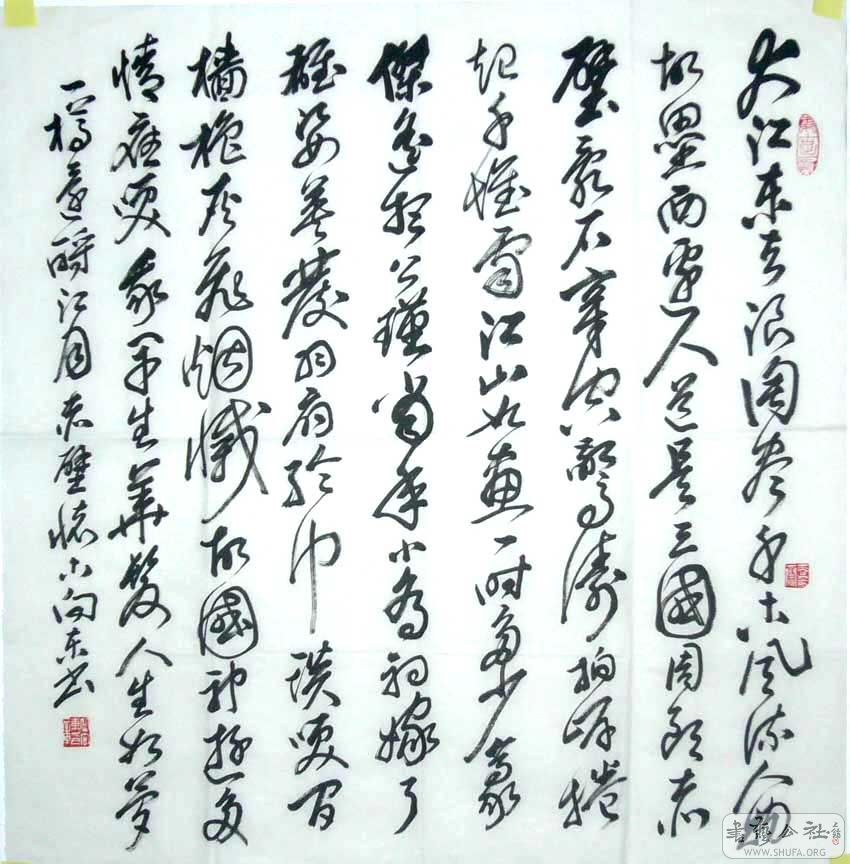 大江东去浪淘尽千古风流人物
故壘西边人道是三國周郎赤
壁乱石穿空驚涛拍岸捲
起千堆雪江山如画一时多少豪
傑遥想公瑾当年小乔初嫁了
雄姿英發羽扇纶巾 谈笑间
樯橹灰飞烟滅故國神遊多
情应笑我早生華髮人生如梦
一樽還酹江月赤壁怀古向东书
書藝公社
WWW.SHUFA.ORG